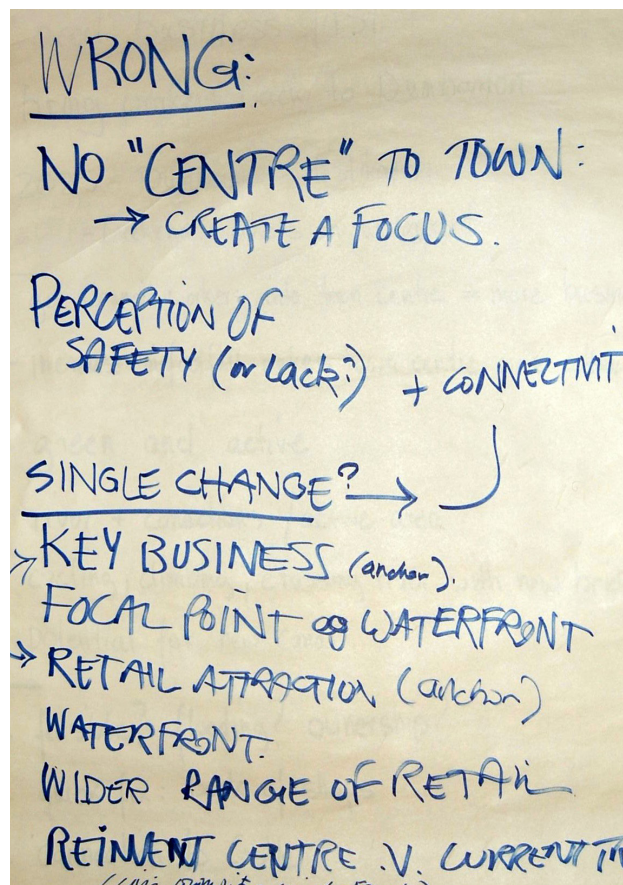 WRONG:
NO "CENTRE" TO TOWN:
→ CREATE A FOCUS.
PERCEPTION OF
SAFETY (or Lack!)
+ CONNECTIVIT
SINGLE CHANGE? →
KEY BUSINESS (anchor).
FOCAL POINT eg WATERFRONT
RETAIL ATTRACTION (anchor)
WATERFRONT.
WIDER RANGE OF RETAIL
REINVENT CENTRE .V. CURRENT